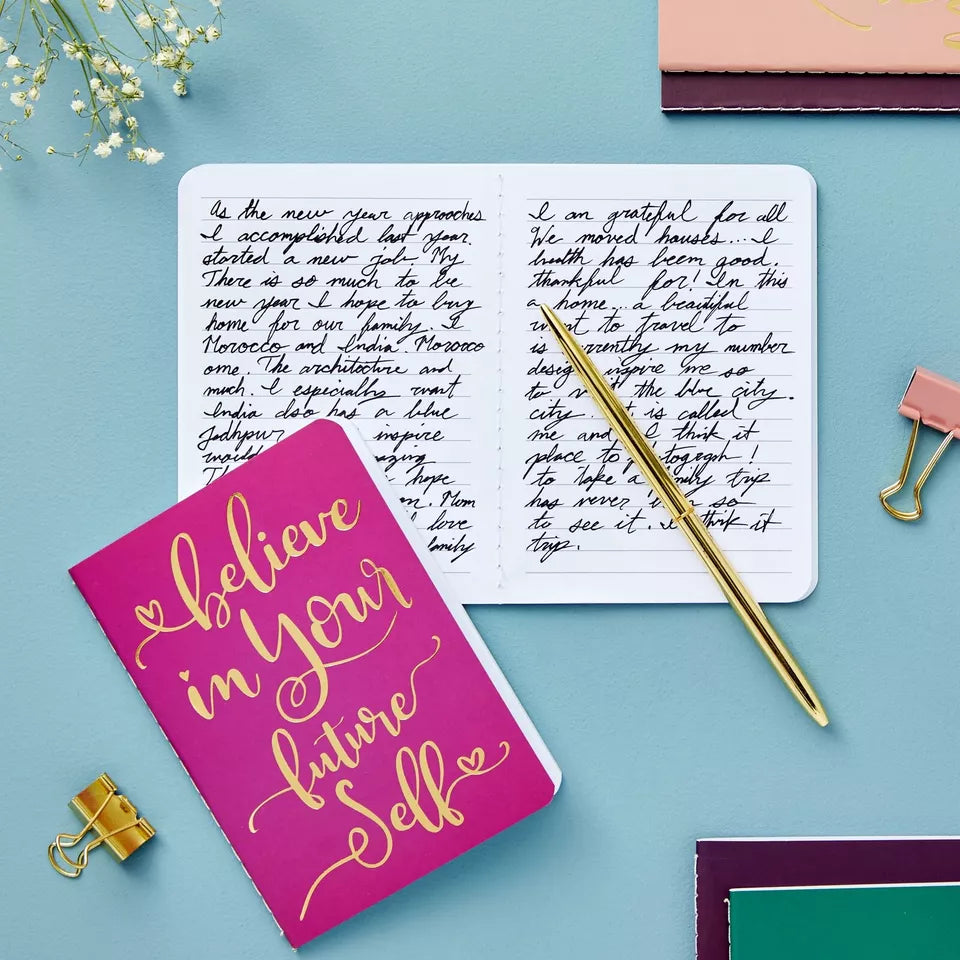 As the new year approaches
I accomplished last year.
started a new job. My
There is so much to be
new year I hope to buy
home for our family. I
Morocco and India. Morocco
ome. The architecture and
much. I especially want
India also has a blue
Jodhpur inspire
would
hope
Mom
love
family
I am grateful for all
We moved houses... I
health has been good.
thankful for! In this
a home... a beautiful
want to travel to
is currently my number
design inspire me so
to the blue city.
city. is called
me and I think it
place to photograph!
to take a family trip
has never been so
to see it. I think it
trip.
believe
in Your
future
Self